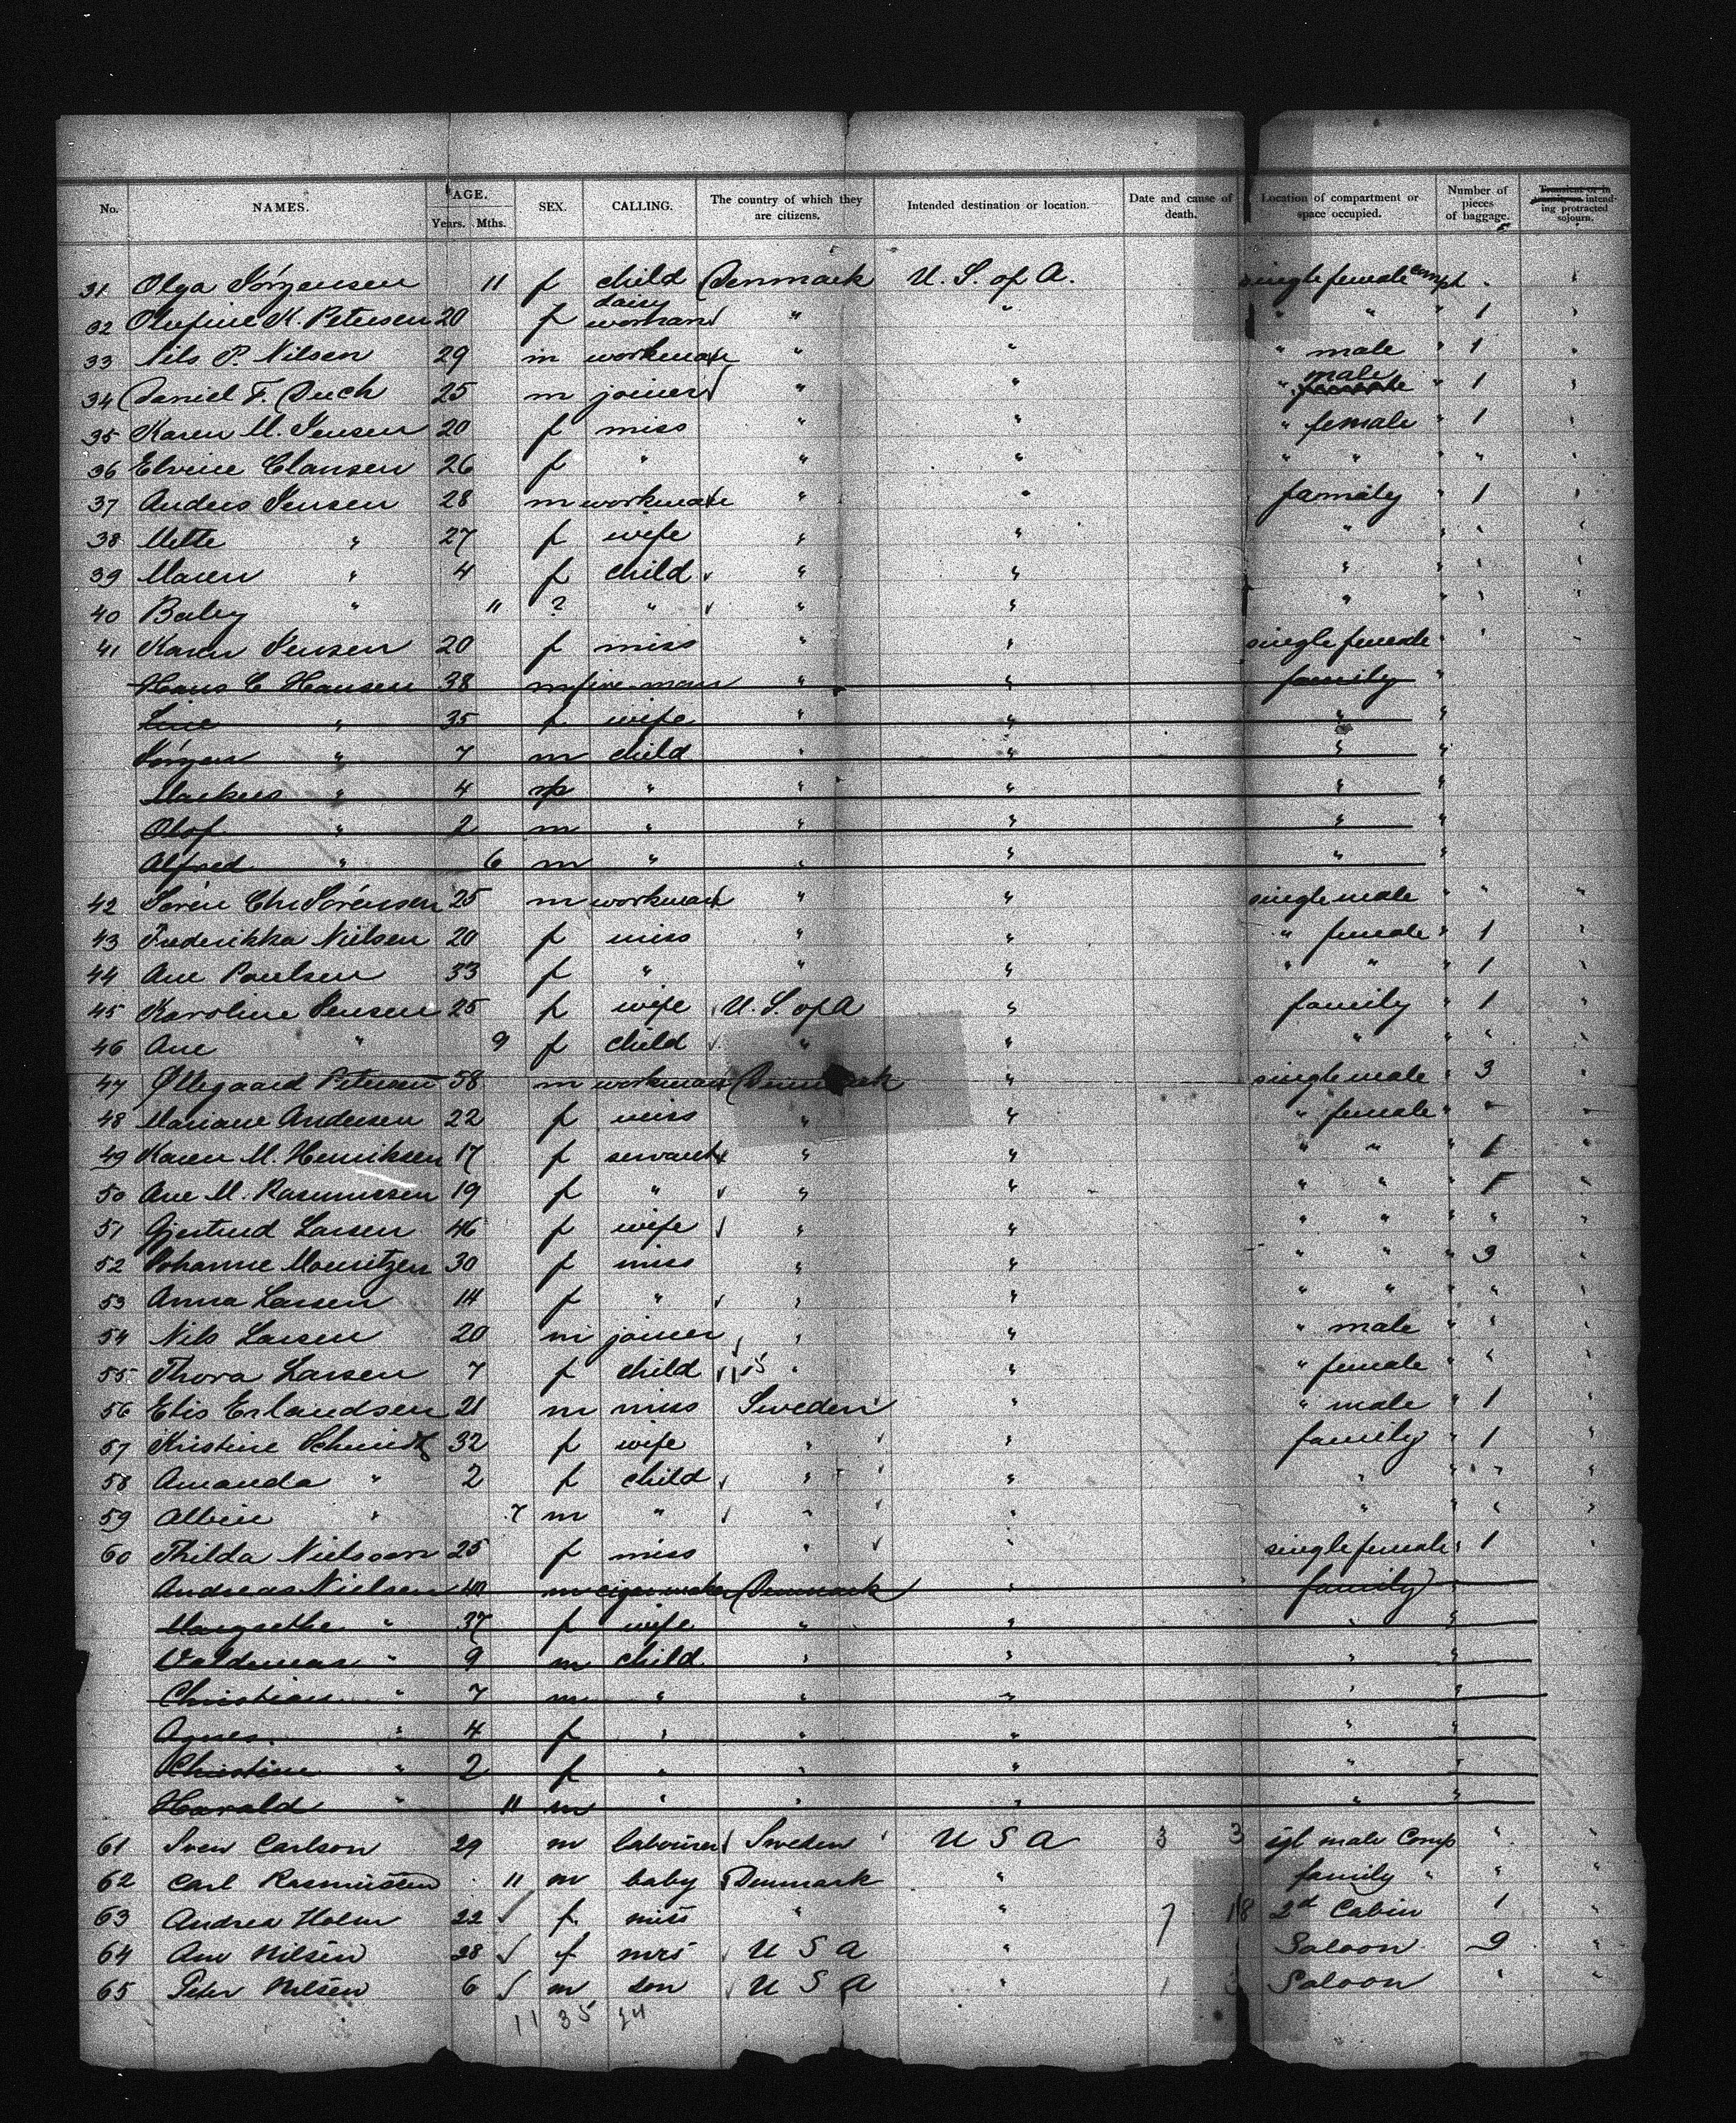 No. NAMES. AGE. Years. Mths. SEX. CALLING. The country of which they are citizens. Intended destination or location. Date and cause of death. Location of compartment or space occupied. Number of pieces of baggage. Transient or in intending protracted sojourn.
31 Olga Jörgensen 11 f child Denmark U. S. of A. single female compt
32 Olufine K. Petersen 20 f daisy workman " " " " " 1
33 Nils P. Nilsen 29 m workman " " " male " 1
34 Daniel F. Duch 25 m joiner " " " male " 1
35 Karen M. Jensen 20 f miss " " " female " 1
36 Elvine Clausen 26 f " " " " " " "
37 Anders Jensen 28 m workman " " family " 1
38 Mette " 27 f wife " " " " "
39 Maren " 4 f child " " " " "
40 Baby " 11 ? " " " " " "
41 Karen Jensen 20 f miss " " single female " "
Hans C Hansen 38 m fireman " " family "
Line " 35 f wife " " " "
Jörgen " 7 m child " " " "
Markus " 4 m " " " " "
Olof " 2 m " " " " "
Alfred " 6 m " " " " "
42 Sören Chr Sörensen 25 m workman " " single male " " "
43 Frederikka Nielsen 20 f miss " " " female " 1 "
44 Ane Poulsen 33 f " " " " " " 1 "
45 Karoline Jensen 25 f wife U. S. of A " family " 1 "
46 Ane " 9 f child " " " " " "
47 Ollegaard Petersen 58 m workman Denmark " single male " 3 "
48 Mariane Andersen 22 f miss " " " female " " "
49 Karen M. Henriksen 17 f servant " " " " " 1 "
50 Ane M. Rasmussen 19 f " " " " " " 1 "
51 Gjertrud Larsen 46 f wife " " " " " " "
52 Johanne Mouritzen 30 f miss " " " " " 3 "
53 Anna Larsen 14 f " " " " " " " "
54 Nils Larsen 20 m joiner " " " male " " "
55 Thora Larsen 7 f child " " " female " " "
56 Elis Erlandsen 21 m miss Sweden " " male " 1 "
57 Kristine Schmidt 32 f wife " " family " 1 "
58 Amanda " 2 f child " " " " " "
59 Albin " 7 m " " " " " " "
60 Thilda Nielsson 25 f miss " " single female " 1 "
Andreas Nielsen 40 m cigar maker Denmark " family "
Margrethe " 37 f wife " " " "
Valdemar " 9 m child " " " "
Christian " 7 m " " " " "
Agnes " 4 f " " " " "
Christine " 2 f " " " " "
Harald " 11 m " " " " "
61 Sven Carlson 29 m labourer Sweden U S A 3 3 sgl male Comp " "
62 Carl Rasmussen 11 m baby Denmark " family " " "
63 Andrea Holm 22 f miss " " 7 18 2d Cabin 1 "
64 Ane Nilsen 28 f mrs U S A " Saloon 9 "
65 Peter Nilsen 6 m son U S A " 1 3 Saloon " "
11 35 24